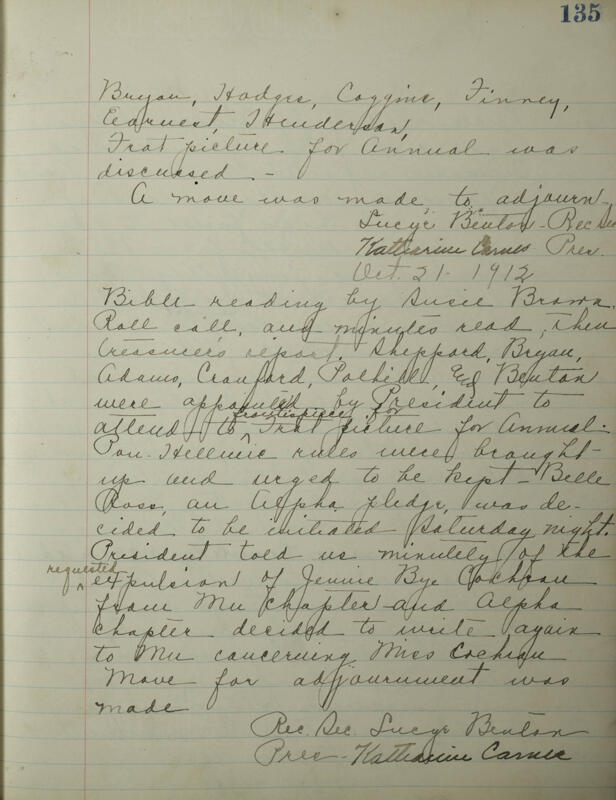 135
Bryan, Hodges, Coggins, Finney,
Earnest, Henderson,
Frat picture for Annual was
discussed -
A move was made to adjourn -
Lucye Benton - Rec Sec
Katharine Carnes Pres.
Oct. 21 - 1912
Bible reading by Susie Brown.
Roll call, and minutes read, then
treasurer's report. Sheppard, Bryan,
Adams, Cranford, Polhill, and Benton
were appointed by President to
frontispiece for
attend to Frat picture for Annual.
Pan-Hellenic rules were brought
up and urged to be kept - Belle
Ross, an Alpha pledge, was de-
cided to be initiated Saturday night.
President told us minutely of the
requested
expulsion of Jennie Bye Cochran
from Mu Chapter and Alpha
chapter decided to write again
to Mu concerning Miss Cochran
Move for adjournment was
made
Rec. Sec. Lucye Benton
Pres - Katharine Carnes